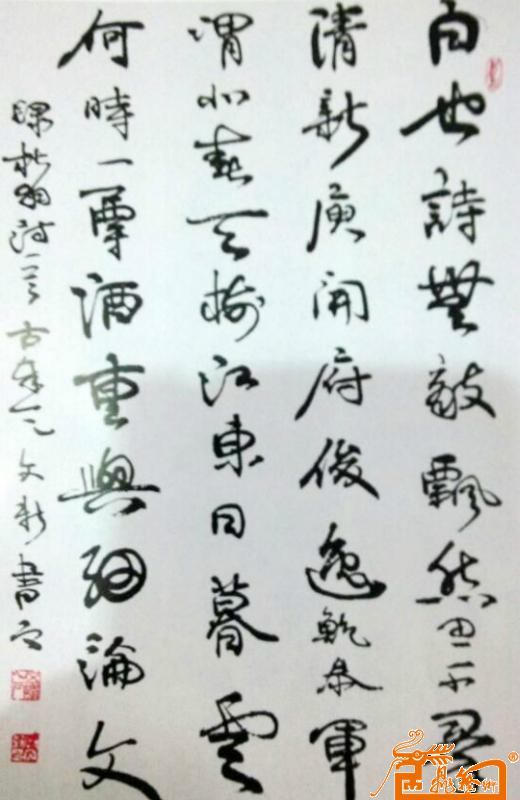 白也詩無敵飄然思不群
清新庾開府俊逸鮑參軍
渭北春天樹江東日暮雲
何時一尊酒重與細論文
錄杜甫詩一首 書